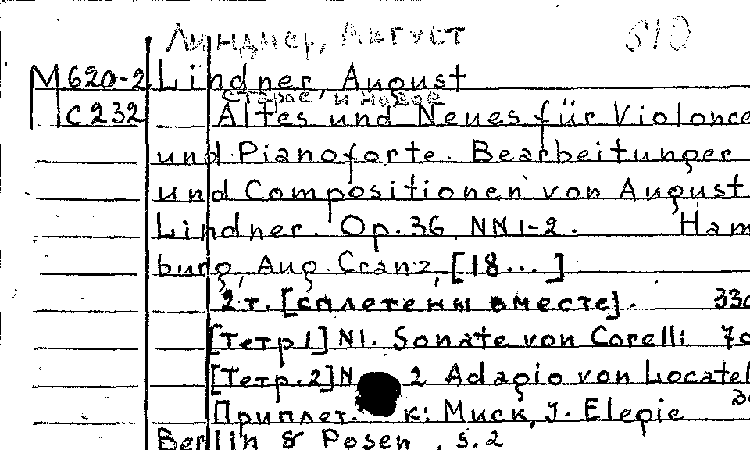 Линднер, Август 510
M620-2 Lindner, August
Старое и новое
C232 Altes und Neues für Violonce
und Pianoforte. Bearbeitunger
und Compositionen von August
Lindner. Op. 36, NN 1-2. Ham
burg, Aug. Cranz, [18...]
2 т. [сплетены вместе]. 330
[Тетр 1] N1. Sonate von Corelli
[Тетр. 2] N 2 Adagio von Locatel
Приплет. к: Миск, J. Elegie
Berlin & Posen, s. 2